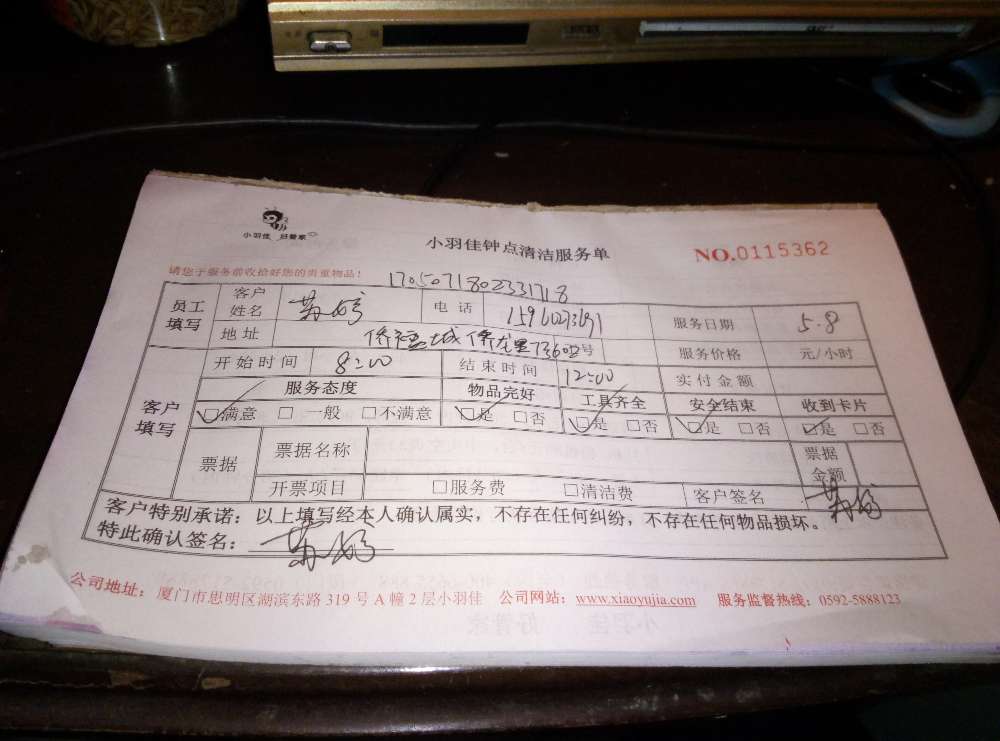 小羽佳 好管家
小羽佳钟点清洁服务单
NO.0115362
请您于服务前收拾好您的贵重物品!
1705071802331718
员工填写 客户姓名 电话 服务日期 5.8
地址 侨福城侨龙里 号 服务价格 元/小时
开始时间 8:00 结束时间 12:00 实付金额
客户填写 服务态度 物品完好 工具齐全 安全结束 收到卡片
☑满意 □一般 □不满意 ☑是 □否 ☑是 □否 ☑是 □否 ☑是 □否
票据 票据名称 票据金额
开票项目 □服务费 □清洁费 客户签名
客户特别承诺:以上填写经本人确认属实,不存在任何纠纷,不存在任何物品损坏。
特此确认签名:
公司地址:厦门市思明区湖滨东路 319 号 A 幢 2 层小羽佳 公司网站:www.xiaoyujia.com 服务监督热线:0592-5888123